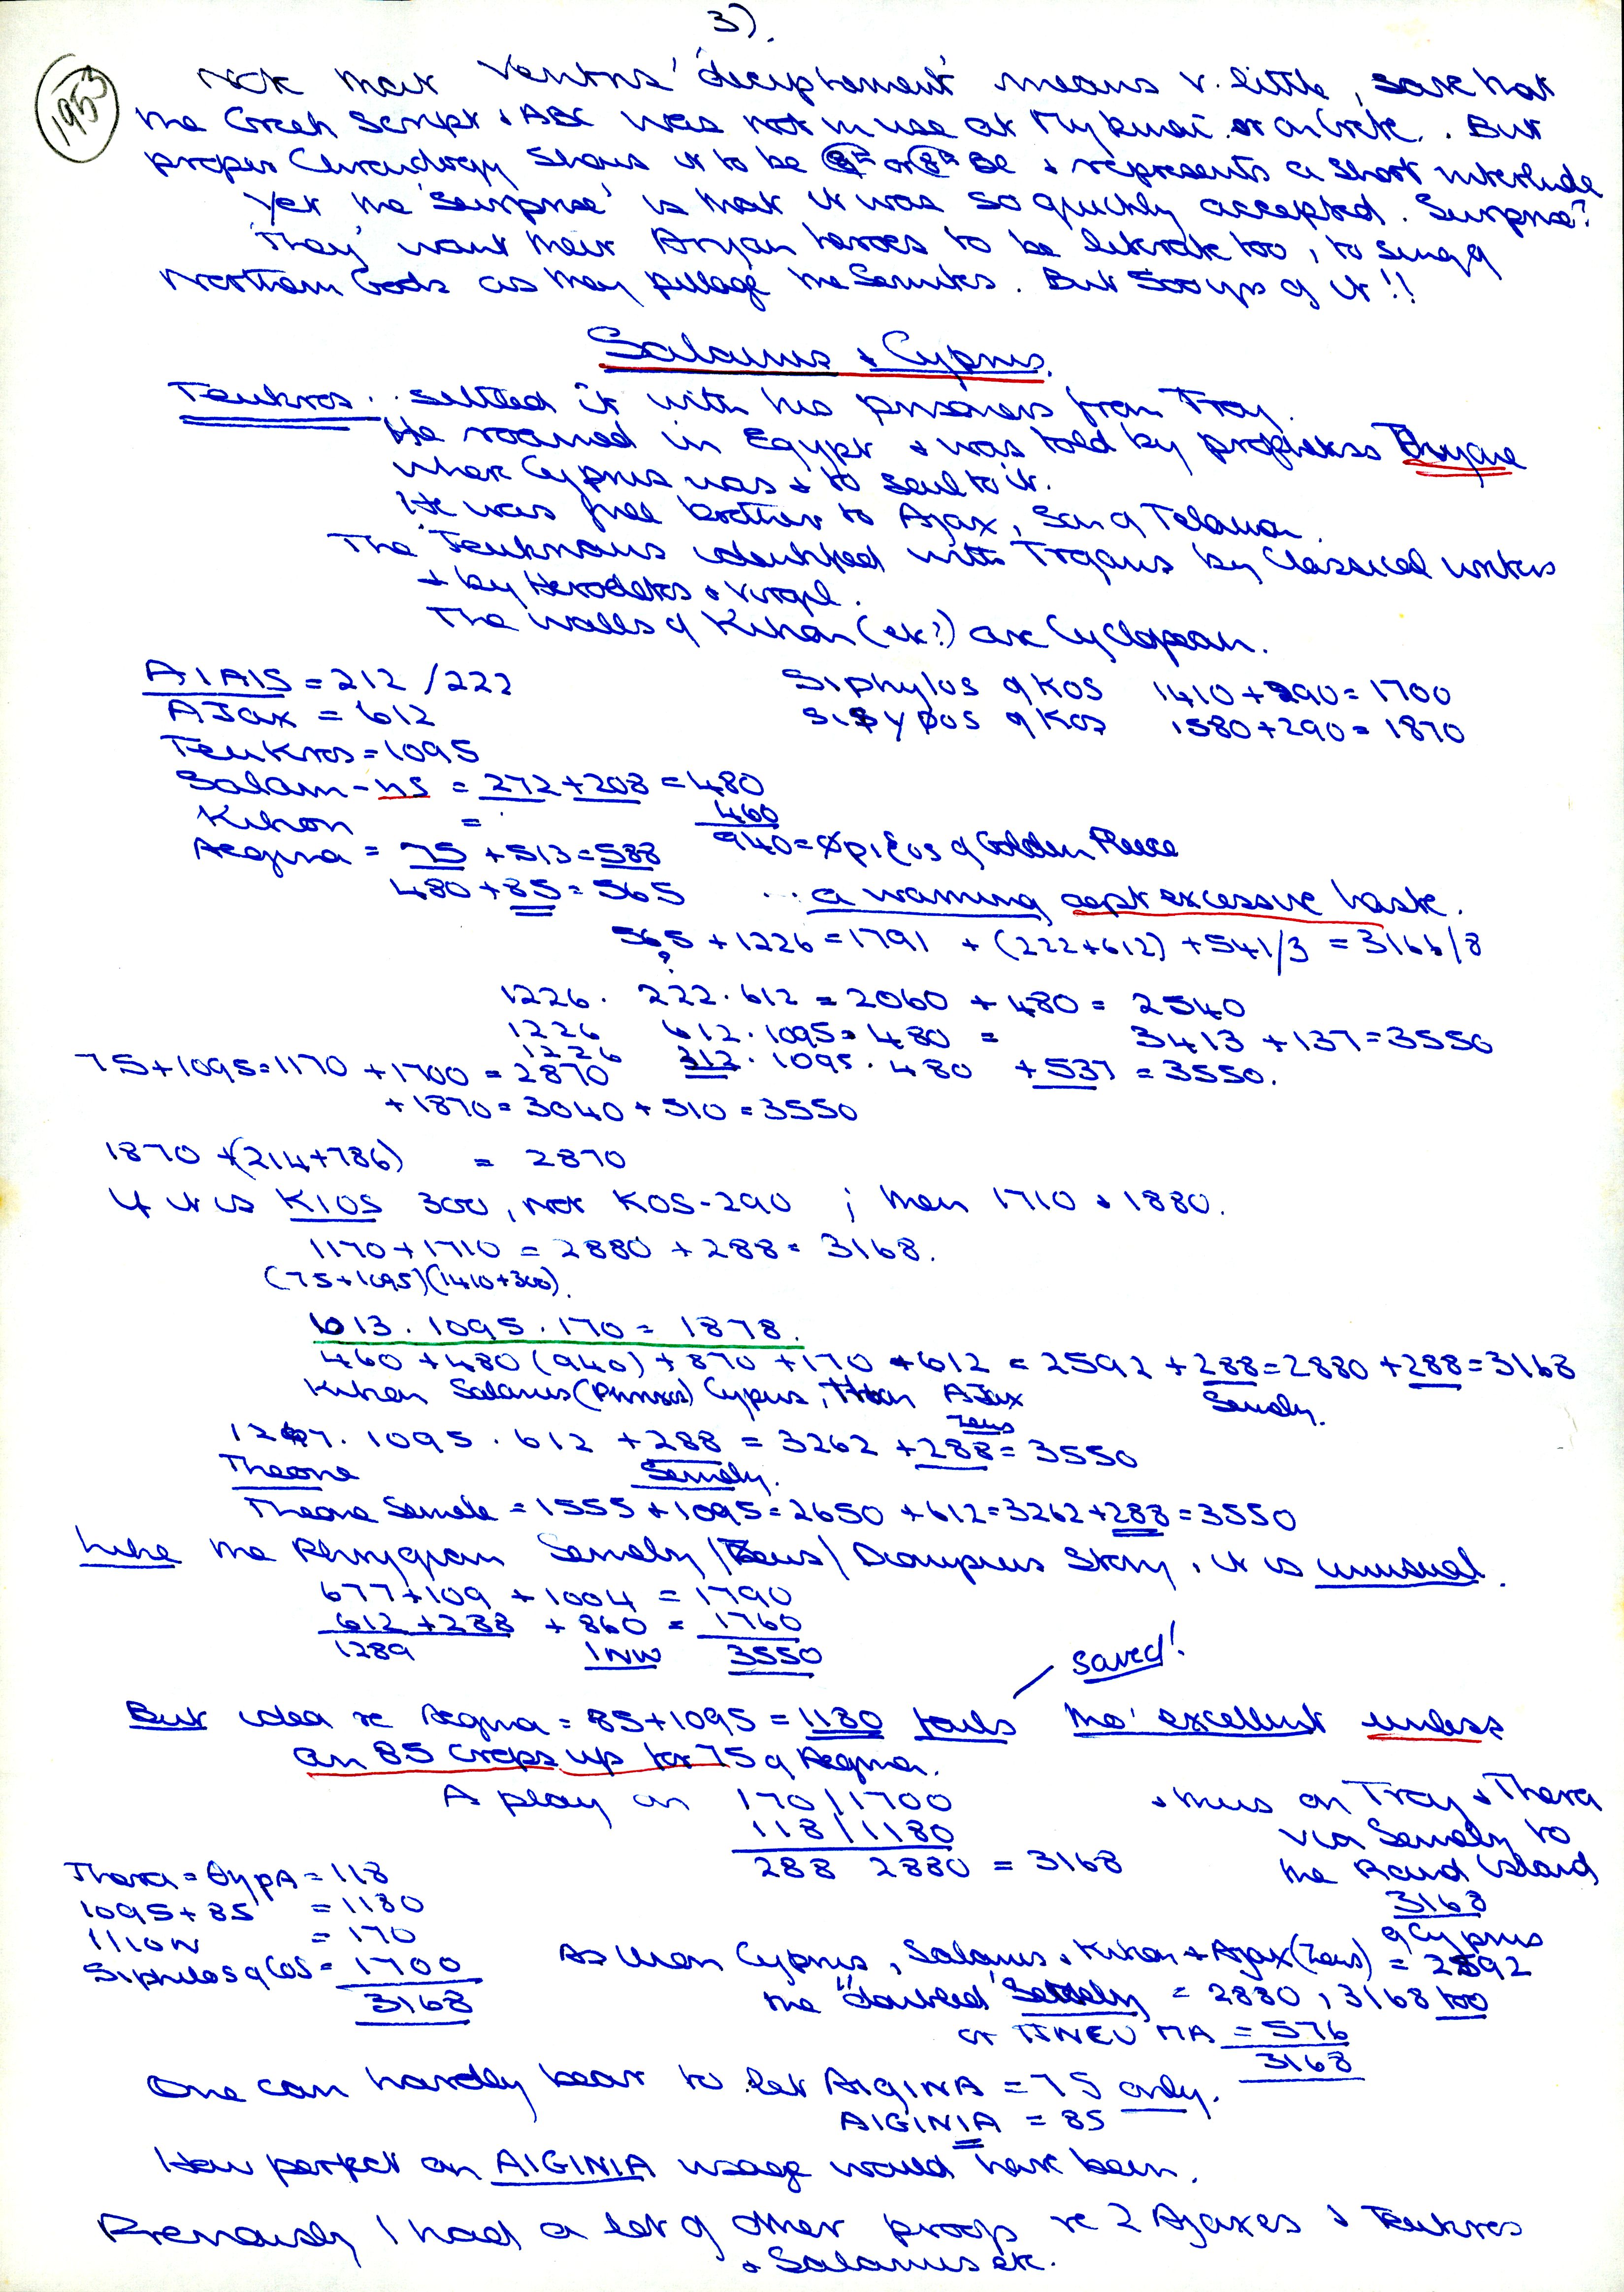 3).
1953
Note that Ventris' 'decipherment' means v. little, save that
the Greek Script & ABC was not in use at Mykenai or on Crete. But
proper Chronology shows it to be or BC & represents a short interlude
Yet the 'surprise' is that it was so quickly accepted. Surprise?
'They' want their Aryan heroes to be literate too, to sing of
Northern Gods as they pillage the Semites. But 500 yrs of it!!
Salamis & Cyprus.
Teukros.. settled it with his prisoners from Troy.
He roamed in Egypt & was told by prophetess
where Cyprus was & to sail to it.
He was full brother to Ajax, Son of Telamon.
The Teukrians identified with Trojans by Classical writers
& by Herodotos & Virgil.
The walls of Kition (etc?) are Cyclopean.
AIAIS = 212 / 222
Siphylos of KOS 1410 + 290 = 1700
AJax = 612
Sisypos of Kos 1580 + 290 = 1870
Teukros = 1095
Salam-ns = 272 + 208 = 480
Kition = 460
Aegina = 75 + 513 = 588
940 = of Golden Fleece
480 + 85 = 565 ... a warning agst excessive haste.
565 + 1226 = 1791 + (222 + 612) + 541/3 = 3166/8
?
1226. 222. 612 = 2060 + 480 = 2540
1226 612. 1095. 480 = 3413 + 137 = 3550
1226 312. 1095. 480 + 537 = 3550.
75 + 1095 = 1170 + 1700 = 2870
+ 1870 = 3040 + 510 = 3550
1870 + (214 + 786) = 2870
If it is KIOS 300, not KOS - 290 ; then 1710 & 1880.
1170 + 1710 = 2880 + 288 = 3168.
(75 + 1095)(1410 + 300).
613. 1095. 170 = 1878.
460 + 480 (940) + 870 + 170 + 612 = 2592 + 288 = 2880 + 288 = 3168
Kition Salamis (Phrixos) Cyprus, AJax Semely.
Zeus
1267. 1095. 612 + 288 = 3262 + 288 = 3550
Theone Semely.
Theone Semele = 1555 + 1095 = 2650 + 612 = 3262 + 288 = 3550
Like the Phrygian Semely / Zeus / Dionysius Story, it is unusual.
677 + 109 + 1004 = 1790
612 + 288 + 860 = 1760
1289 3550
saved!
But idea re Aegina = 85 + 1095 = 1180 fails tho' excellent unless
an 85 crops up for 75 of Aegina.
A play on 170 / 1700
118 / 1180
288 2880 = 3168
& thus on Troy & Thera
via Semely to
the Island
3168
of Cyprus
Thera = ΘηρA = 118
1095 + 85 = 1180
ILION = 170
Siphilos of Cos = 1700
3168
As when Cyprus, Salamis, & Kition & Ajax (Zeus) = 2592
the "doubled" Semely = 2880, 3168 too
or ΠNEUMA = 576
3168
One can hardly bear to let AIGINA = 75 only.
AIGINIA = 85
How perfect an AIGINIA usage would have been.
Previously I had a lot of other proofs re 2 Ajaxes & Teukros
& Salamis etc.